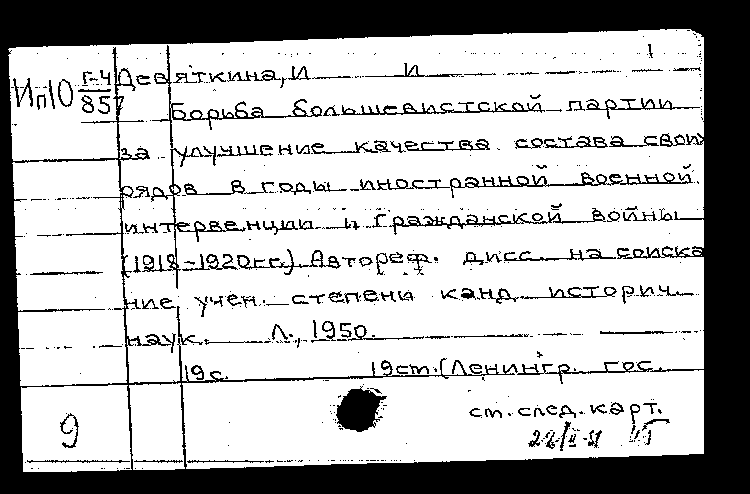 1
Ип10 Г-4/857 Девяткина, И И
Борьба большевистской партии
за улучшение качества состава своих
рядов в годы иностранной военной
интервенции и гражданской войны
(1918-1920гг.). Автореф. дисс. на соиска
ние учен. степени канд. историч.
наук. Л., 1950.
19с. 19см. (Ленингр. гос.
см. след. карт.
9